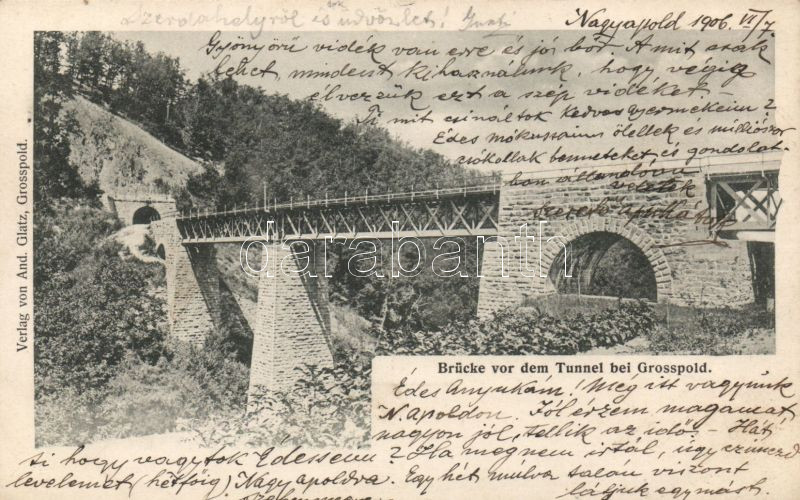 Szerdahelyről is üdvözlet!
Nagyapold 1906. VII/7.
Gyönyörű vidék van erre és jó bor. A mit csak
lehet, mindent kihasználunk, hogy végig
élvezzük ezt a szép vidéket.—
Ti mit csináltok kedves gyermekeim?
Édes mókusaim ölellek és milliószor
csókollak benneteket és gondolat-
ban állandóan
veletek
szerető apukátok
Verlag von And. Glatz, Grosspold.
darabanth
Brücke vor dem Tunnel bei Grosspold.
Édes Anyukám! Még itt vagyunk
N.apoldon. Jól érzem magamat,
nagyon jól, telik az idő.— Hát
ti hogy vagytok Édesseim? Ha megnem irtál, úgy czimezd
levelemet (hétfőig) Nagyapoldra. Egy hét múlva talán viszont
látjuk egymást.